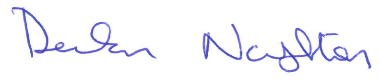 Declan Naughton